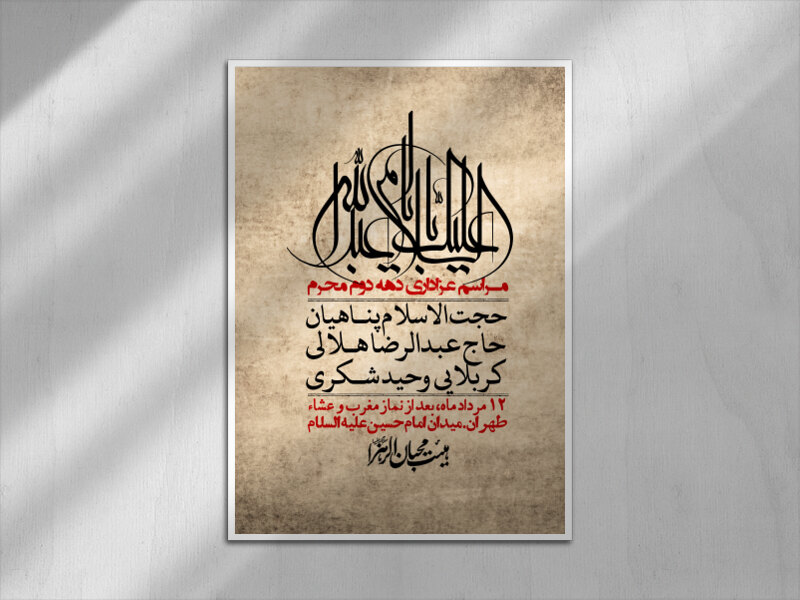 السلام علیک یا اباعبدالله
مراسم عزاداری دهه دوم محرم
حجت الاسلام پناهیان
حاج عبدالرضا هلالی
کربلایی وحید شکری
۱۲ مرداد ماه، بعد از نماز مغرب و عشاء
طهران. میدان امام حسین علیه السلام
هیئت محبان الزهرا